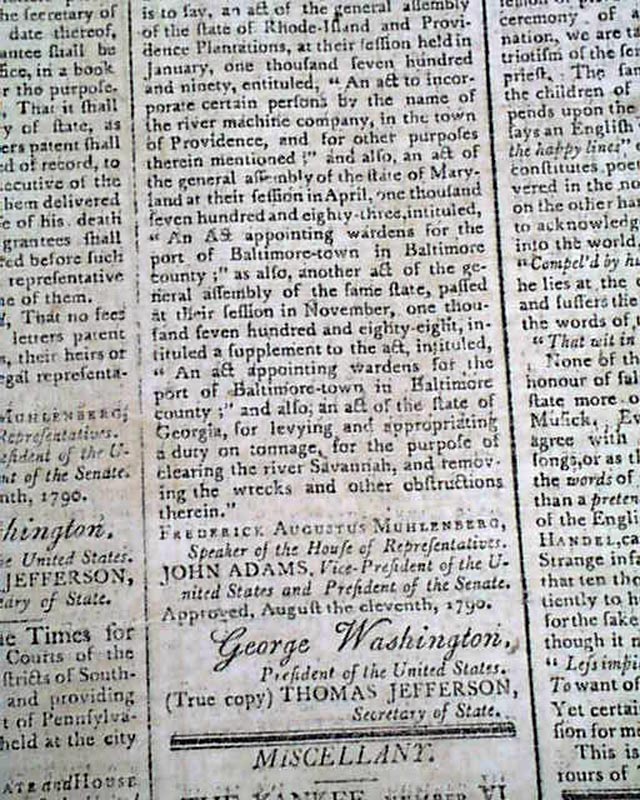 the secretary of
date thereof,
antee shall be
fice, in a book
r the purpose.
That it shall
y of state, as
ers patent shall
ed of record, to
ecutive of the
hem delivered
e of his death
grantees shall
red before such
representative
ne of them.
That no fees
letters patent
s, their heirs or
egal representa-
MUHLENBERG,
Representatives.
esident of the U-
nt of the Senate.
nth, 1790.
hington.
e United States.
JEFFERSON,
ary of State.
he Times for
Courts of the
stricts of South-
and providing
t of Pennsylva-
held at the city
ATE and HOUSE
is to say, an act of the general assembly
of the state of Rhode-Island and Provi-
dence Plantations, at their session held in
January, one thousand seven hundred
and ninety, entituled, “ An act to incor-
porate certain persons by the name of
the river machine company, in the town
of Providence, and for other purposes
therein mentioned ;” and also, an act of
the general assembly of the state of Mary-
land at their session in April, one thousand
seven hundred and eighty-three, intituled,
“ An Act appointing wardens for the
port of Baltimore-town in Baltimore
county ;” as also, another act of the ge-
neral assembly of the same state, passed
at their session in November, one thou-
sand seven hundred and eighty-eight, in-
tituled a supplement to the act, intituled,
“ An act appointing wardens for the
port of Baltimore-town in Baltimore
county ;” and also, an act of the state of
Georgia, for levying and appropriating
a duty on tonnage, for the purpose of
clearing the river Savannah, and remov-
ing the wrecks and other obstructions
therein.”
FREDERICK AUGUSTUS MUHLENBERG,
Speaker of the House of Representatives.
JOHN ADAMS, Vice-President of the U-
nited States and President of the Senate.
Approved, August the eleventh, 1790.
George Washington,
President of the United States.
(True copy) THOMAS JEFFERSON,
Secretary of State.
MISCELLANY.
THE YANKEE NUMBER VI
ceremony of
nation, we are ta
triotism of the se
priest. The fam
the children of
pends upon the
says an English
the happy lines”
constitutes poe
vered in the no
on the other har
to acknowledg
into the world
“Compel'd by hu
he lies at the
and suffers the
the words of
“ That wit in
None of the
honour of fal
state more o
Musick, E
agree with
songs, or as t
the words of
than a preten
of the Engli
HANDEL, ca
Strange infa
that ten the
tiently to h
for the sake
though it
“ Less impi
To want of
Yet certain
sion for me
This is
rours of